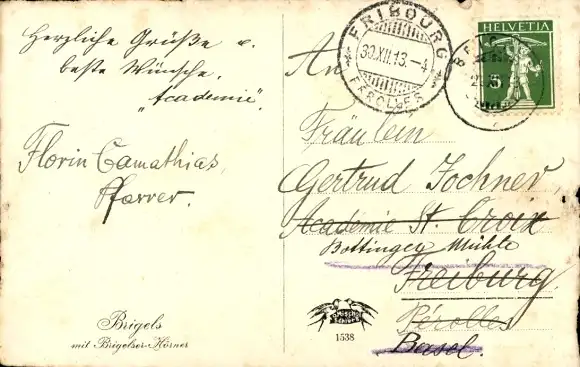 Herzliche Grüße u.
beste Wünsche.
"Academie"
Florin Camathias,
Pfarrer.
Brigels
mit Brigelser-Hörner
FRIBOURG
30.XII.13.-4
PÉROLLES
HELVETIA
5
An
Fräulein
Gertrud Jochner,
Academie St. Croix
Bottinger Mühle
Freiburg
Pérolles
Basel.
1538